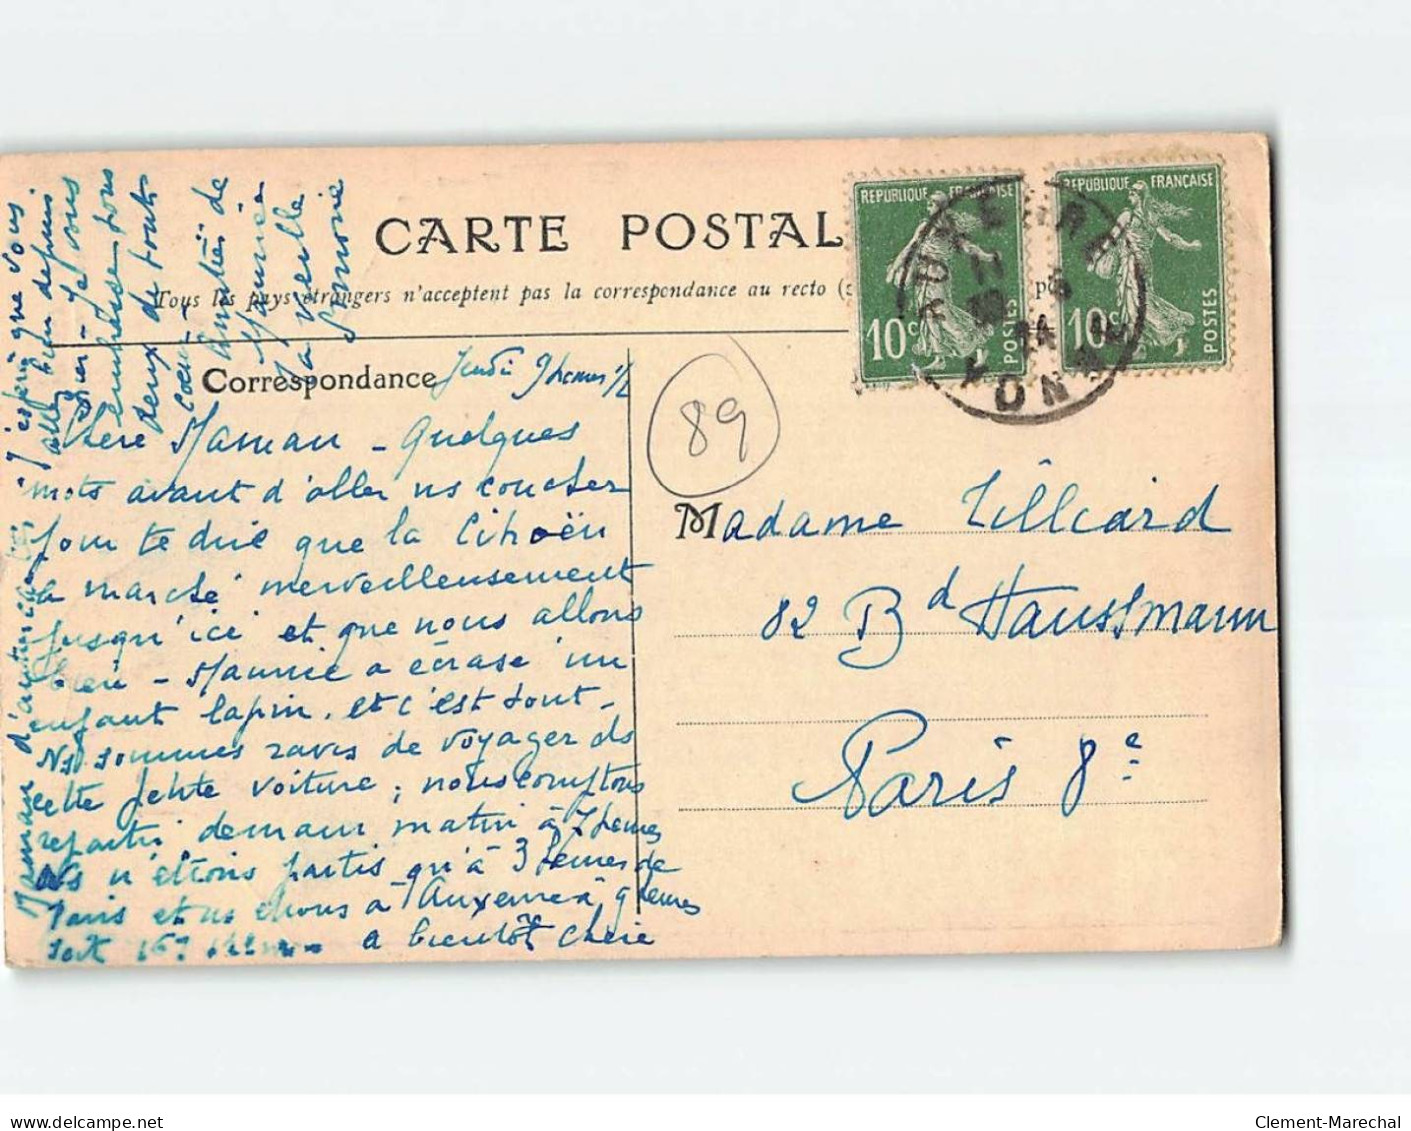 CARTE POSTAL
Tous les pays étrangers n'acceptent pas la correspondance au recto
RÉPUBLIQUE FRANÇAISE
10c
POSTES
RÉPUBLIQUE FRANÇAISE
10c
POSTES
AUXERRE
YONNE
Correspondance
Jeudi 9 heures 1/2
89
Chère Maman - Quelques
mots avant d'aller ns coucher
pour te dire que la Citroën
a marché merveilleusement
jusqu'ici et que nous allons
bien - Maurice a écrasé un
enfant lapin. et c'est tout -
Ns sommes ravis de voyager ds
cette petite voiture ; nous comptons
repartir demain matin à 7 heures
Ns n'étions partis qu'à 3 heures de
Paris et ns étions à Auxerre à 9 heures
soit
à bientôt chère
Maman d'autres
J'espère que vous
allez bien depuis
hier - Je vous
embrasse tous
deux de tout
coeur -
Amitiés de
Maurice
Ta vieille
Simone
Madame Tilliard
82 Bd Haussmann
Paris 8e
delcampe.net
Clement-Marechal